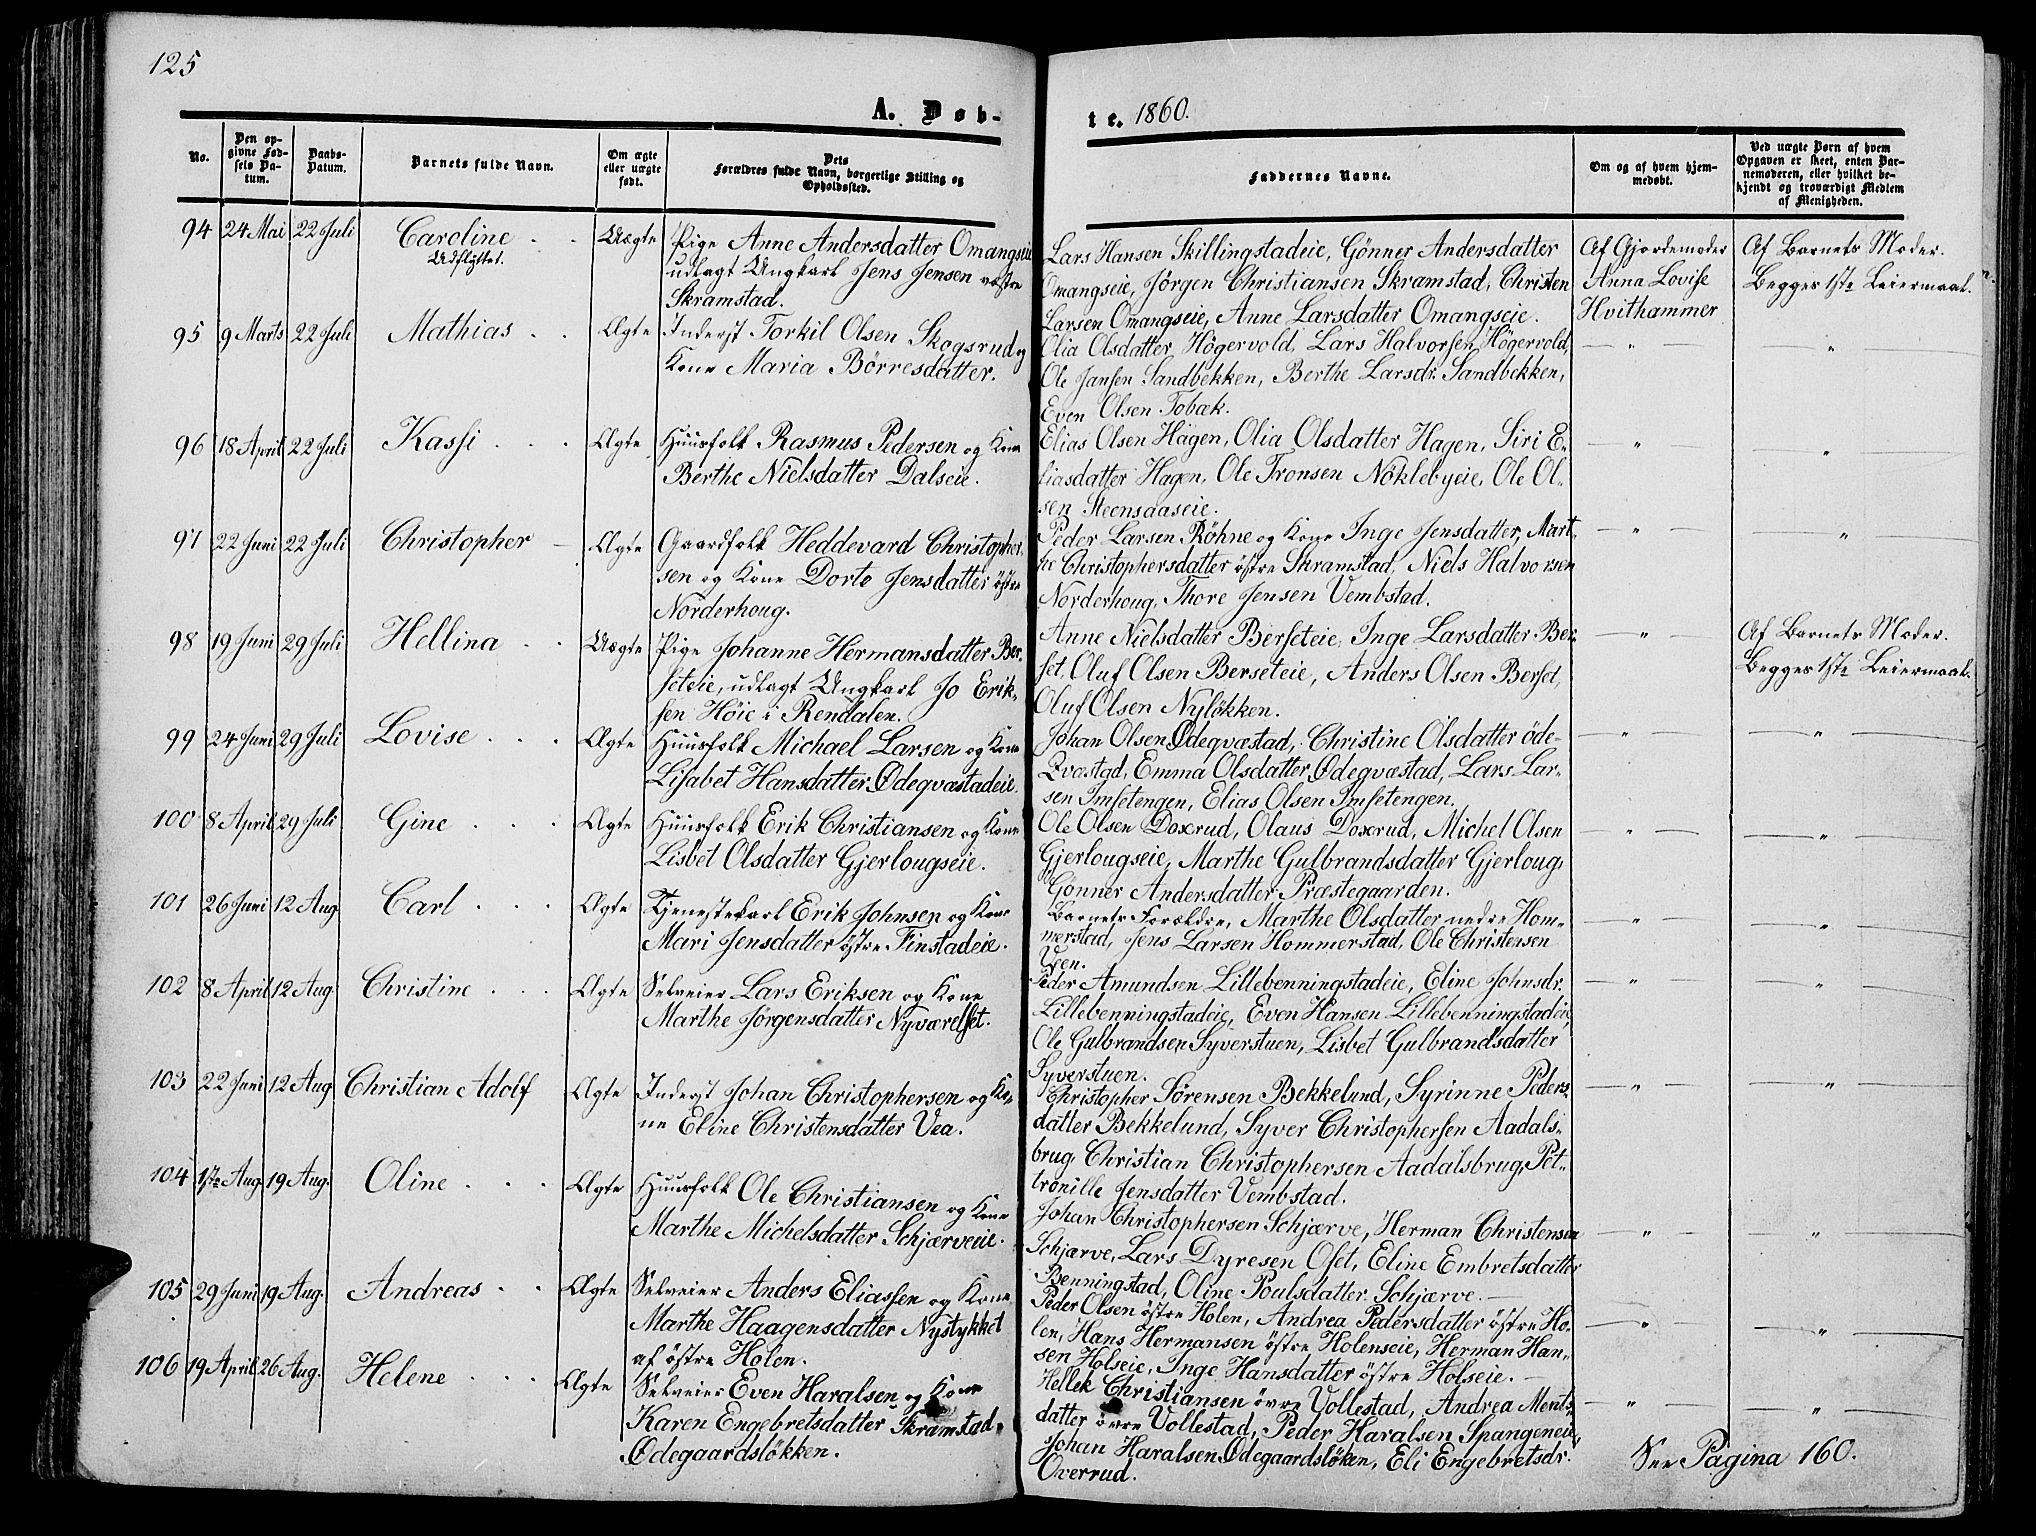 125
A. Døb-
te. 1860.
No.
Den op-
givne Fød-
sels Da-
tum.
Daabs-
Datum.
Barnets fulde Navn.
Om ægte
eller uægte
født.
Dets
Forældres fulde Navn, borgerlige Stilling og
Opholdssted.
Faddernes Navne.
Om og af hvem hjem-
medøbt.
Ved uægte Børn af hvem
Opgaven er skeet, enten Bar-
nemoderen, eller hvilket be-
kjendt og troværdigt Medlem
af Menigheden.
94 24 Mai 22 Juli Caroline Uægte Pige Anne Andersdatter Omangseie
Udflyttet. udlagt Ungkarl Jens Jensen vestre
Skramstad.
Lars Hansen Skillingstadeie, Gönner Andersdatter
Omangseie, Jørgen Christiansen Skramstad, Christen
Larsen Omangseie, Anne Larsdatter Omangseie.
Af Gjordemoder
Anna Lovise
Hvithammer
Af Barnets Moder.
Begges 1ste Leiermaal.
95 9 Marts 22 Juli Mathias Ægte Inderst Torkil Olsen Skogsrud og
Kone Maria Börresdatter.
Olia Olsdatter Högervold, Lars Halvorsen Högervold,
Ole Jansen Sandbekken, Berthe Larsdr. Sandbekken,
Even Olsen Tobæk.
— " —
— " —
96 18 April 22 Juli Kassi Ægte Huusfolk Rasmus Pedersen og Kone
Berthe Nielsdatter Dalseie.
Elias Olsen Hagen, Olia Olsdatter Hagen, Siri E-
liasdatter Hagen, Ole Tronsen Nöklebyeie, Ole Ol-
sen Steensaaseie.
— " —
— " —
97 22 Juni 22 Juli Christopher Ægte Gaardfolk Heddevard Christopher-
sen og Kone Dorte Jensdatter östre
Norderhoug.
Peder Larsen Röhne og Kone Inge Jensdatter, Mart-
he Christophersdatter östre Skramstad, Niels Halvorsen
Norderhoug, Thore Jensen Vembstad.
— " —
— " —
98 19 Juni 29 Juli Hellina Uægte Pige Johanne Hermansdatter Ber-
seteie, udlagt Ungkarl Jo Erik-
sen Höie i Rendalen.
Anne Nielsdatter Berseteie, Inge Larsdatter Ber-
set, Oluf Olsen Berseteie, Anders Olsen Berset,
Oluf Olsen Nylökken.
— " —
Af Barnets Moder.
Begges 1ste Leiermaal.
99 24 Juni 29 Juli Lovise Ægte Huusfolk Michael Larsen og Kone
Lisabet Hansdatter Ødeqvæstadeie.
Johan Olsen Ødeqvæstad, Christine Olsdatter öde-
Qvæstad, Emma Olsdatter Ødeqvæstad, Lars Lar-
sen Imsetengen, Elias Olsen Imsetengen.
— " —
— " —
100 8 April 29 Juli Gine Ægte Huusfolk Erik Christiansen og Kone
Lisbet Olsdatter Gjerlougseie.
Ole Olsen Doxrud, Olaus Doxrud, Michel Olsen
Gjerlougseie, Marthe Gulbrandsdatter Gjerloug,
Gönner Andersdatter Præstegaarden.
— " —
— " —
101 26 Juni 12 Aug Carl Ægte Tjenestekarl Erik Johnsen og Kone
Mari Jensdatter östre Finstadeie.
Barnets Forældre, Marthe Olsdatter nedre Hom-
merstad, Jens Larsen Hommerstad, Ole Christensen
Veen.
— " —
— " —
102 8 April 12 Aug Christine Ægte Selveier Lars Eriksen og Kone
Marthe Jörgensdatter Nyværelset.
Peder Amundsen Lillebenningstadeie, Eline Johnsdr.
Lillebenningstadeie, Even Hansen Lillebenningstadeie,
Ole Gulbrandsen Syverstuen, Lisbet Gulbrandsdatter
Syverstuen.
— " —
— " —
103 22 Juni 12 Aug Christian Adolf Ægte Inderst Johan Christophersen og Ko-
ne Eline Christensdatter Vea.
Christopher Sörensen Bekkelund, Syrinne Peders-
datter Bekkelund, Syver Christophersen Aadals-
brug, Christian Christophersen Aadalsbrug, Pet-
tronille Jensdatter Vembstad.
— " —
— " —
104 1ste Aug 19 Aug. Oline Ægte Huusfolk Ole Christiansen og Kone
Marthe Michelsdatter Schjærveeie.
Johan Christophersen Schjærve, Herman Christensen
Schjærve, Lars Dyresen Oset, Eline Embretsdatter
Benningstad, Oline Poulsdatter Schjærve. —
— " —
— " —
105 29 Juni 19 Aug. Andreas Ægte Selveier Anders Eliassen og Kone
Marthe Haagensdatter Nystykket
af östre Holen.
Peder Olsen östre Holen, Andrea Pedersdatter östre Ho-
len, Hans Hermansen östre Holenseie, Herman Han-
sen Holseie, Inge Hansdatter östre Holseie. —
— " —
— " —
106 19 April 26 Aug. Helene Ægte Selveier Even Haralsen og Kone
Karen Engebretsdatter Skramstad-
Ødegaardslökken.
Hellek Christiansen övre Vollestad, Andrea Ments-
datter övre Vollestad, Peder Haralsen Spangeneie,
Johan Haralsen Ødegaardslöken, Eli Engebretsdr.
Overrud.
— " —
— " —
See Pagina 160.